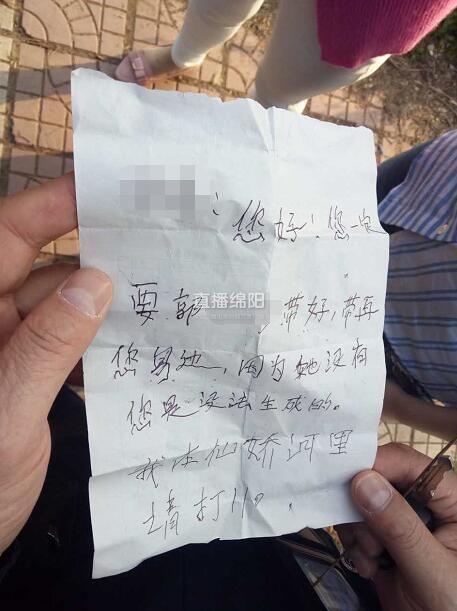 ：您好！您一定
要 带好，带再
您身边，因为她没有
您是没法生成的。
我在仙娇河里
请打110。
直播绵阳